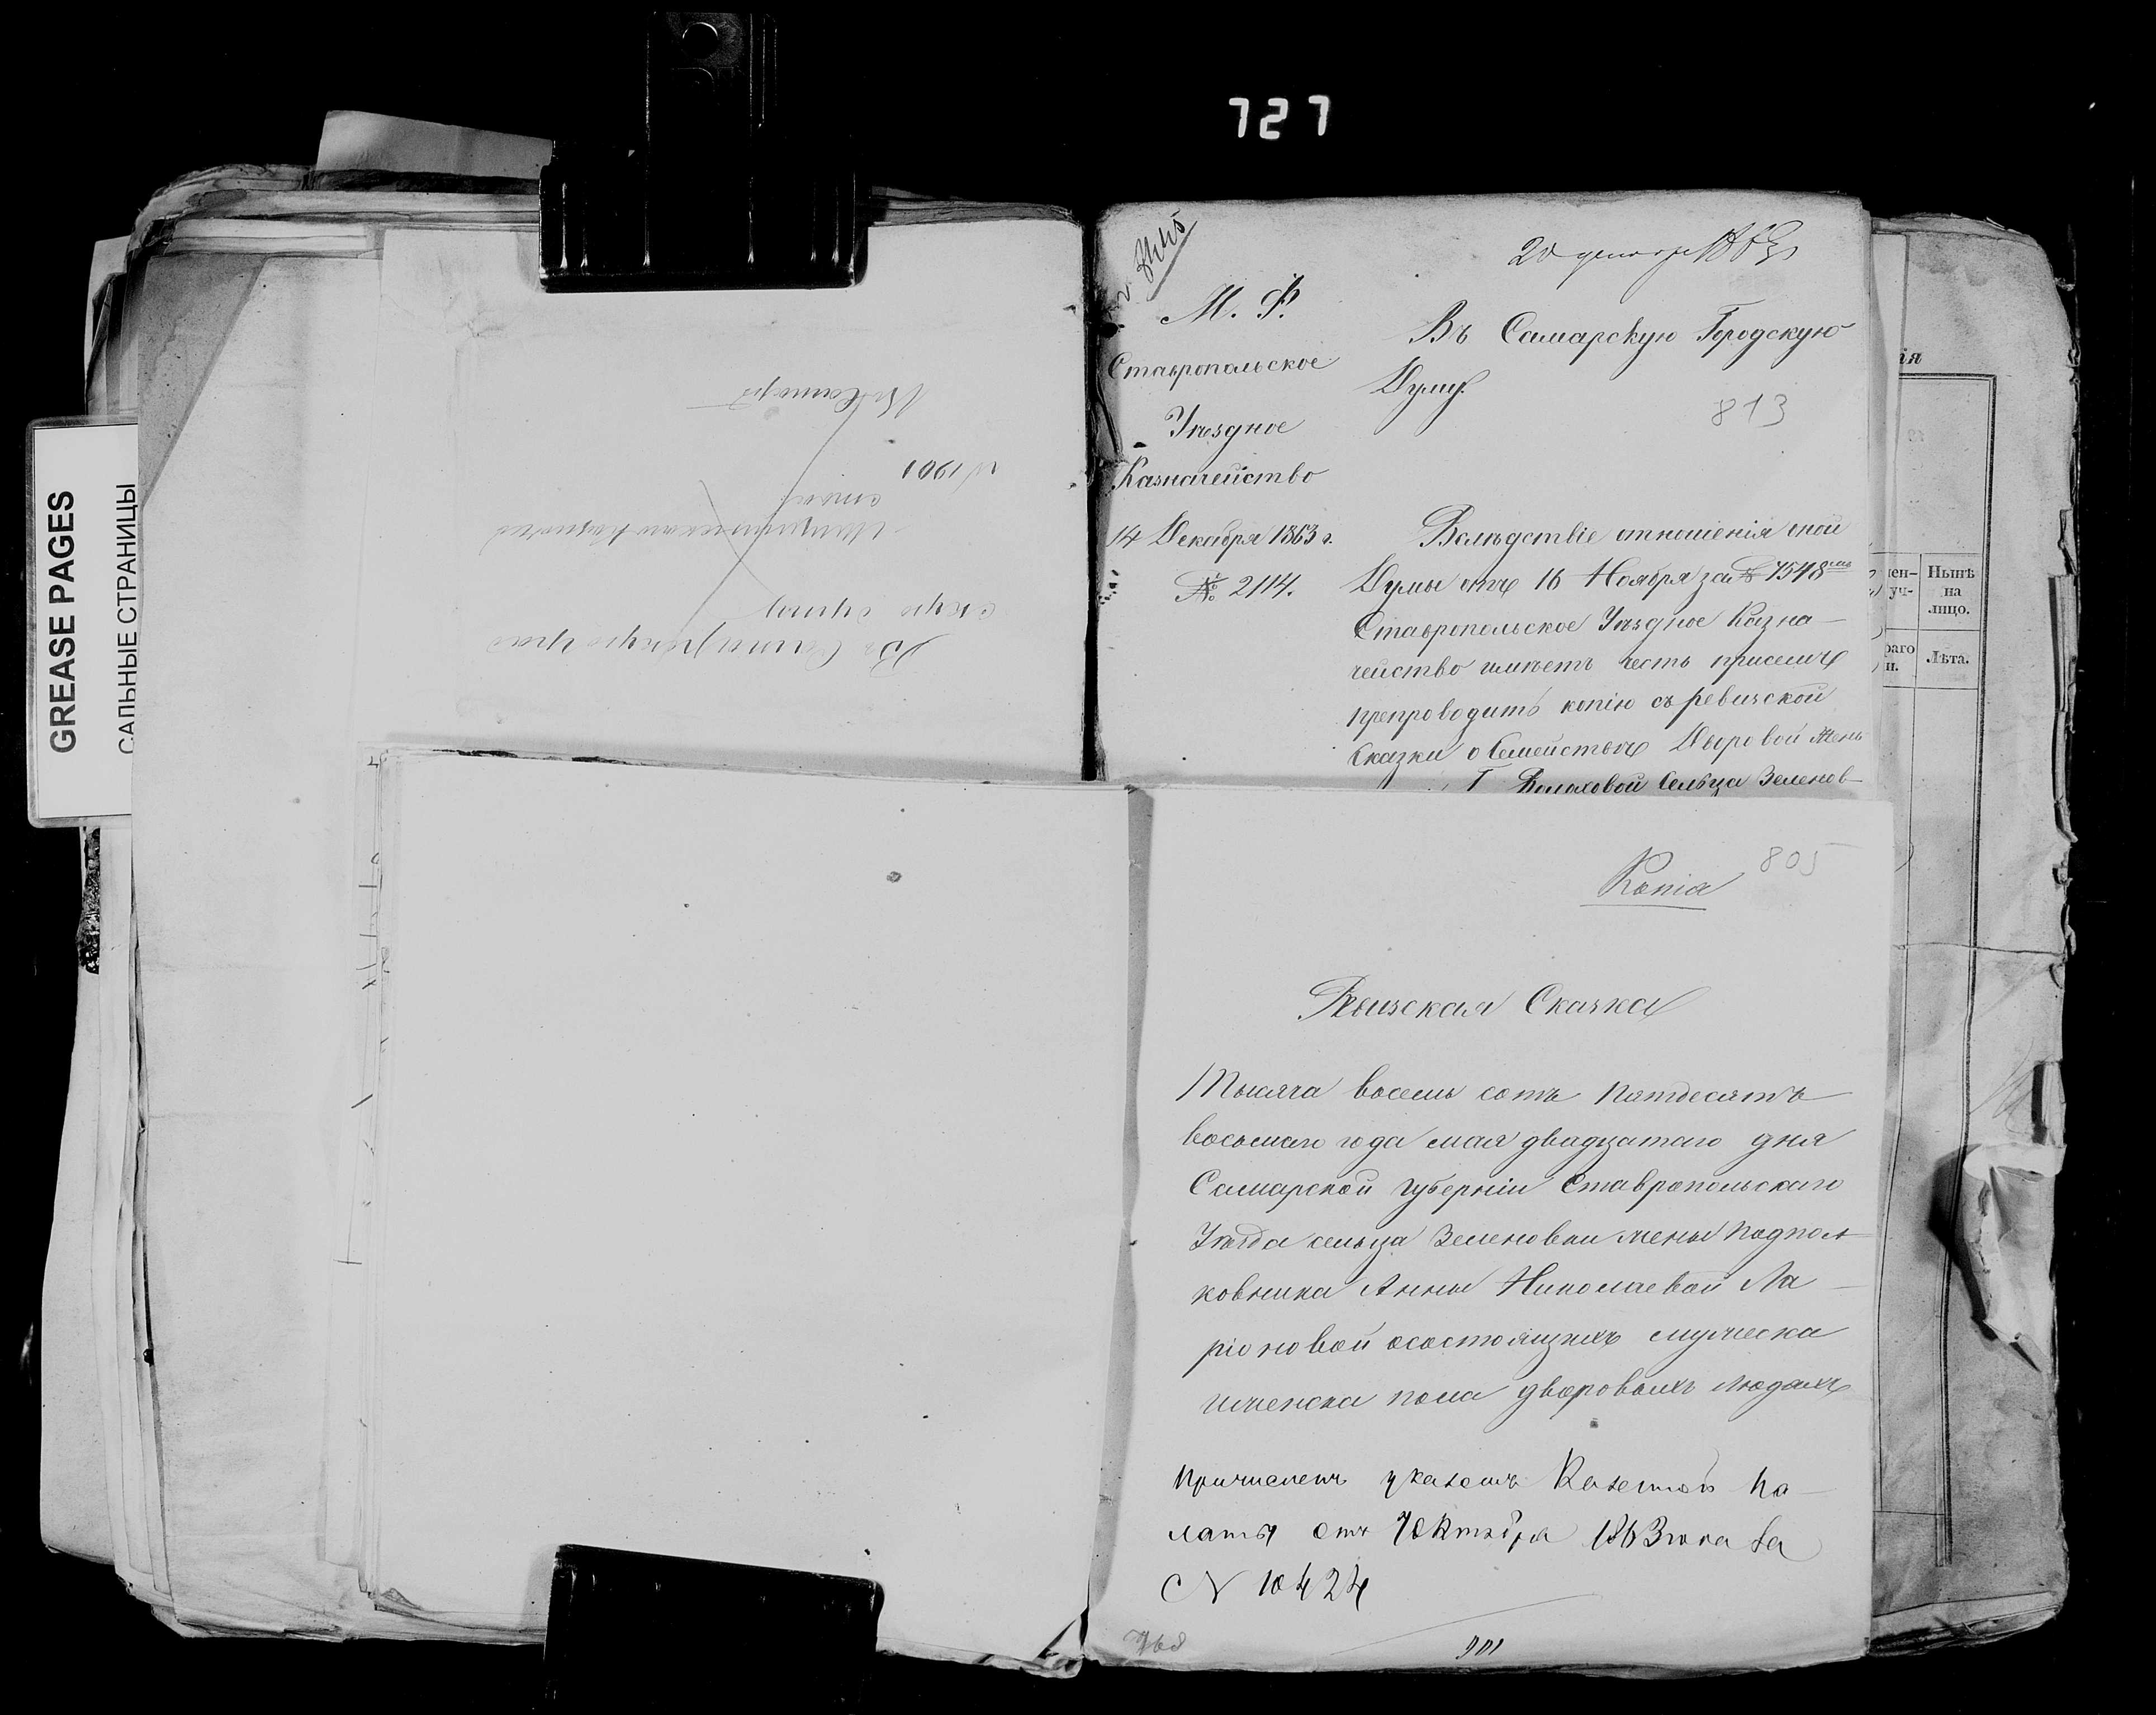 727
GREASE PAGES
САЛЬНЫЕ СТРАНИЦЫ
Въ Самарскую град
скую думу
стол
№ 1901
Въ Самару
20 декабря 1863
М. Ф.
Ставропольское
Уѣздное
Казначейство
14 Декабря 1863 г.
№ 2114.
Въ Самарскую Городскую
Думу.
813
Вслѣдствіе отношенія оной
Думы отъ 16 Ноября за № 7548
Ставропольское Уѣздное Казна-
чейство имѣетъ честь присемъ
препроводить копію съ ревизской
сказки о Семействѣ Дворовой Жен
Сельца Зеленов-
ія
мен-
уч-
Нынѣ
на
лицо.
раго
н.
Лѣта.
805
Копіа
Ревизская Сказка
Тысяча восемь сотъ пятдесятъ
восьмаго года мая двадцатаго дня
Самарской губерніи Ставропольскаго
Уѣзда сельца Зеленовки жены Подпол-
ковника Анны Николаевой Ла-
ріоновой осостоящихъ мужеска
иженска пола дворовыхъ людахъ
Причисленъ указомъ Казенной Па-
латы отъ 7 Октября 1863 года за
№ 10424
768
901